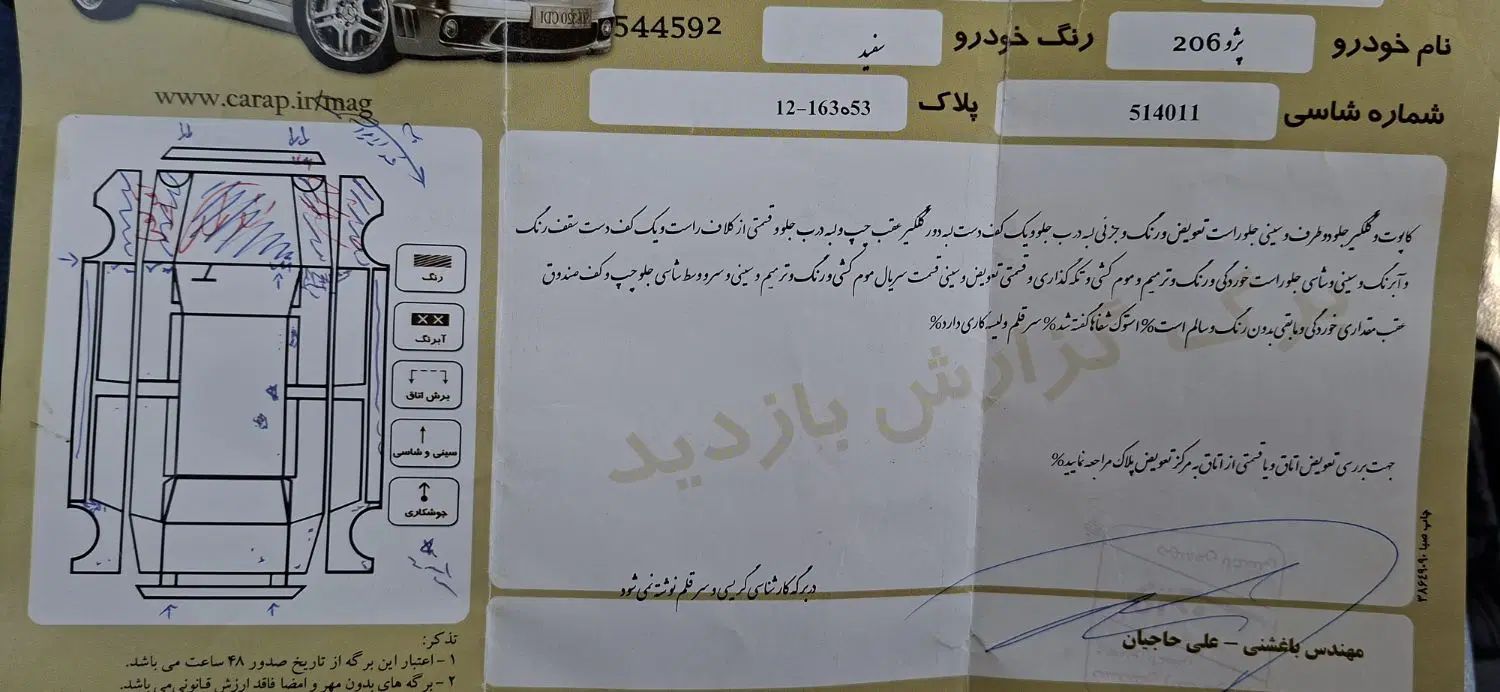 نام خودرو پژو 206 رنگ خودرو سفید 544592
شماره شاسی 514011 پلاک 12-163ه53
www.carap.ir/mag
کاپوت و گلگیر جلو دو طرف و سینی جلو راست تعویض و رنگ و جزئی لبه درب جلو و یک کف دست لبه دور گلگیر عقب چپ و لبه درب جلو و قسمتی از کلاف راست و یک کف دست سقف رنگ
و آبرنگ و سینی و شاسی جلو راست خوردگی و رنگ و ترمیم و موم کشی و تکه گذاری و قسمتی تعویض و سینی قسمت سریال موم کشی و رنگ و ترمیم و سینی و سر و وسط شاسی جلو چپ و کف صندوق
عقب مقداری خوردگی و مابقی بدون رنگ و سالم است% استوک شفاها گفته شد% سر قلم و لیسه کاری دارد%
برگ گزارش بازدید
جهت بررسی تعویض اتاق و یا قسمتی از اتاق به مرکز تعویض پلاک مراجعه نمایید%
در برگه کارشناسی گریسی و سر قلم نوشته نمی شود
مهندس باغشنی - علی حاجیان
رنگ
آبرنگ
برش اتاق
سینی و شاسی
جوشکاری
تذکر:
۱- اعتبار این برگه از تاریخ صدور ۴۸ ساعت می باشد.
۲- برگه های بدون مهر و امضا فاقد ارزش قانونی می باشد.
چاپ صبا ۳۸۶۴۹۰۹۰